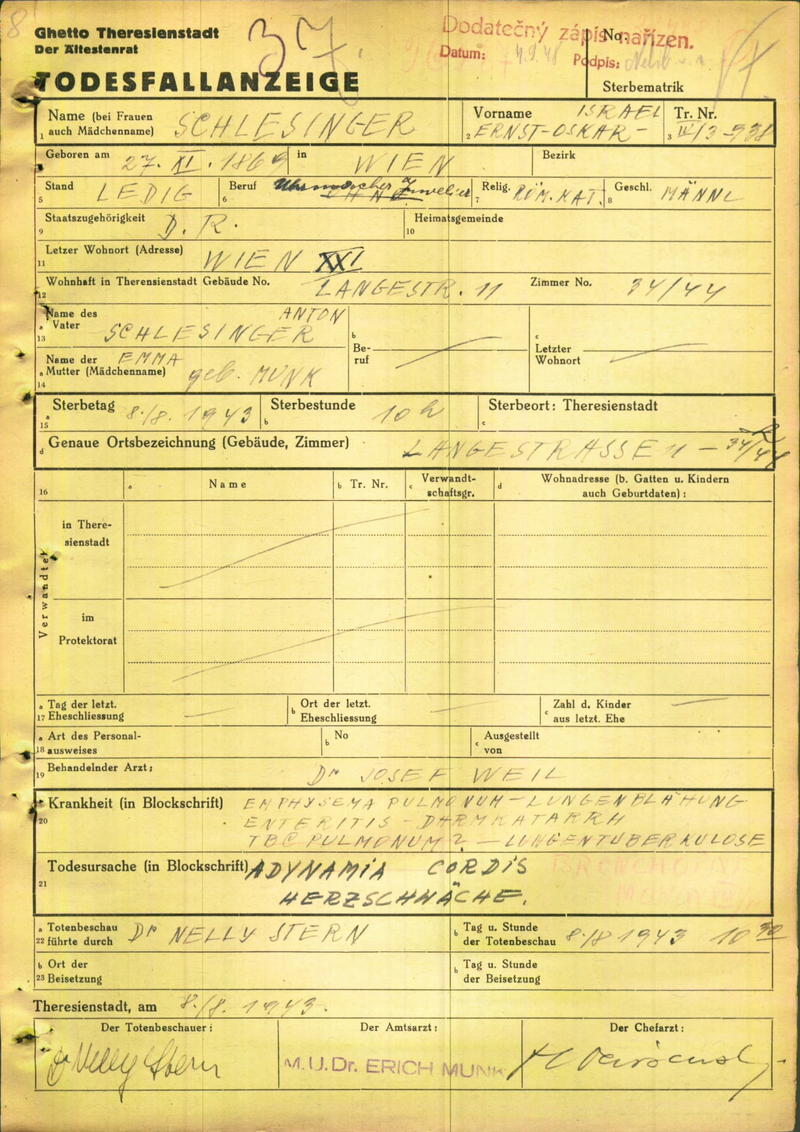 8
37.
Ghetto Theresienstadt
Der Ältestenrat
TODESFALLANZEIGE
Dodatečný zápis nařízen.
Datum: 4.9.48 Podpis:
No.
Sterbematrik
Name (bei Frauen
1 auch Mädchenname) SCHLESINGER
Vorname ISRAEL
2 ERNST-OSKAR-
Tr. Nr.
3
Geboren am 27. XI. 1869 in WIEN Bezirk
Stand LEDIG
5
Beruf
6
Relig. RÖM. KAT.
7
Geschl. MÄNNL
8
Staatszugehörigkeit D. R.
9
Heimatsgemeinde
10
Letzer Wohnort (Adresse) WIEN XXI
11
Wohnhaft in Theresienstadt Gebäude No. LANGESTR. 11 Zimmer No. 34/44
12
Name des ANTON
a Vater SCHLESINGER
13
Name der EMMA
a Mutter (Mädchenname) geb. MUNK
14
b
Be-
ruf
c
Letzter
Wohnort
a Sterbetag 8./8. 1943
15
Sterbestunde 10 h
b
Sterbeort: Theresienstadt
c
d Genaue Ortsbezeichnung (Gebäude, Zimmer) LANGESTRASSE 11 - 34/44
16
a Name
b Tr. Nr.
c Verwandt-
schaftsgr.
d Wohnadresse (b. Gatten u. Kindern
auch Geburtdaten) :
Verwandte
in There-
sienstadt
im
Protektorat
a Tag der letzt.
17 Eheschliessung
b Ort der letzt.
Eheschliessung
c Zahl d. Kinder
aus letzt. Ehe
a Art des Personal-
18 ausweises
b No
c Ausgestellt
von
Behandelnder Arzt: Dr JOSEF WEIL
19
Krankheit (in Blockschrift) EMPHYSEMA PULMONUM - LUNGENBLÄHUNG
20 ENTERITIS - DARMKATARRH
TBC PULMONUM ? - LUNGENTUBERKULOSE
Todesursache (in Blockschrift) ADYNAMIA CORDIS
21 HERZSCHWÄCHE.
a Totenbeschau
22 führte durch Dr NELLY STERN
b Tag u. Stunde
der Totenbeschau 8./8 1943 10 30
b Ort der
23 Beisetzung
b Tag u. Stunde
der Beisetzung
Theresienstadt, am 8./8. 1943.
Der Totenbeschauer:
Dr Nelly Stern
Der Amtsarzt:
M.U.Dr. ERICH MUNK
Der Chefarzt: